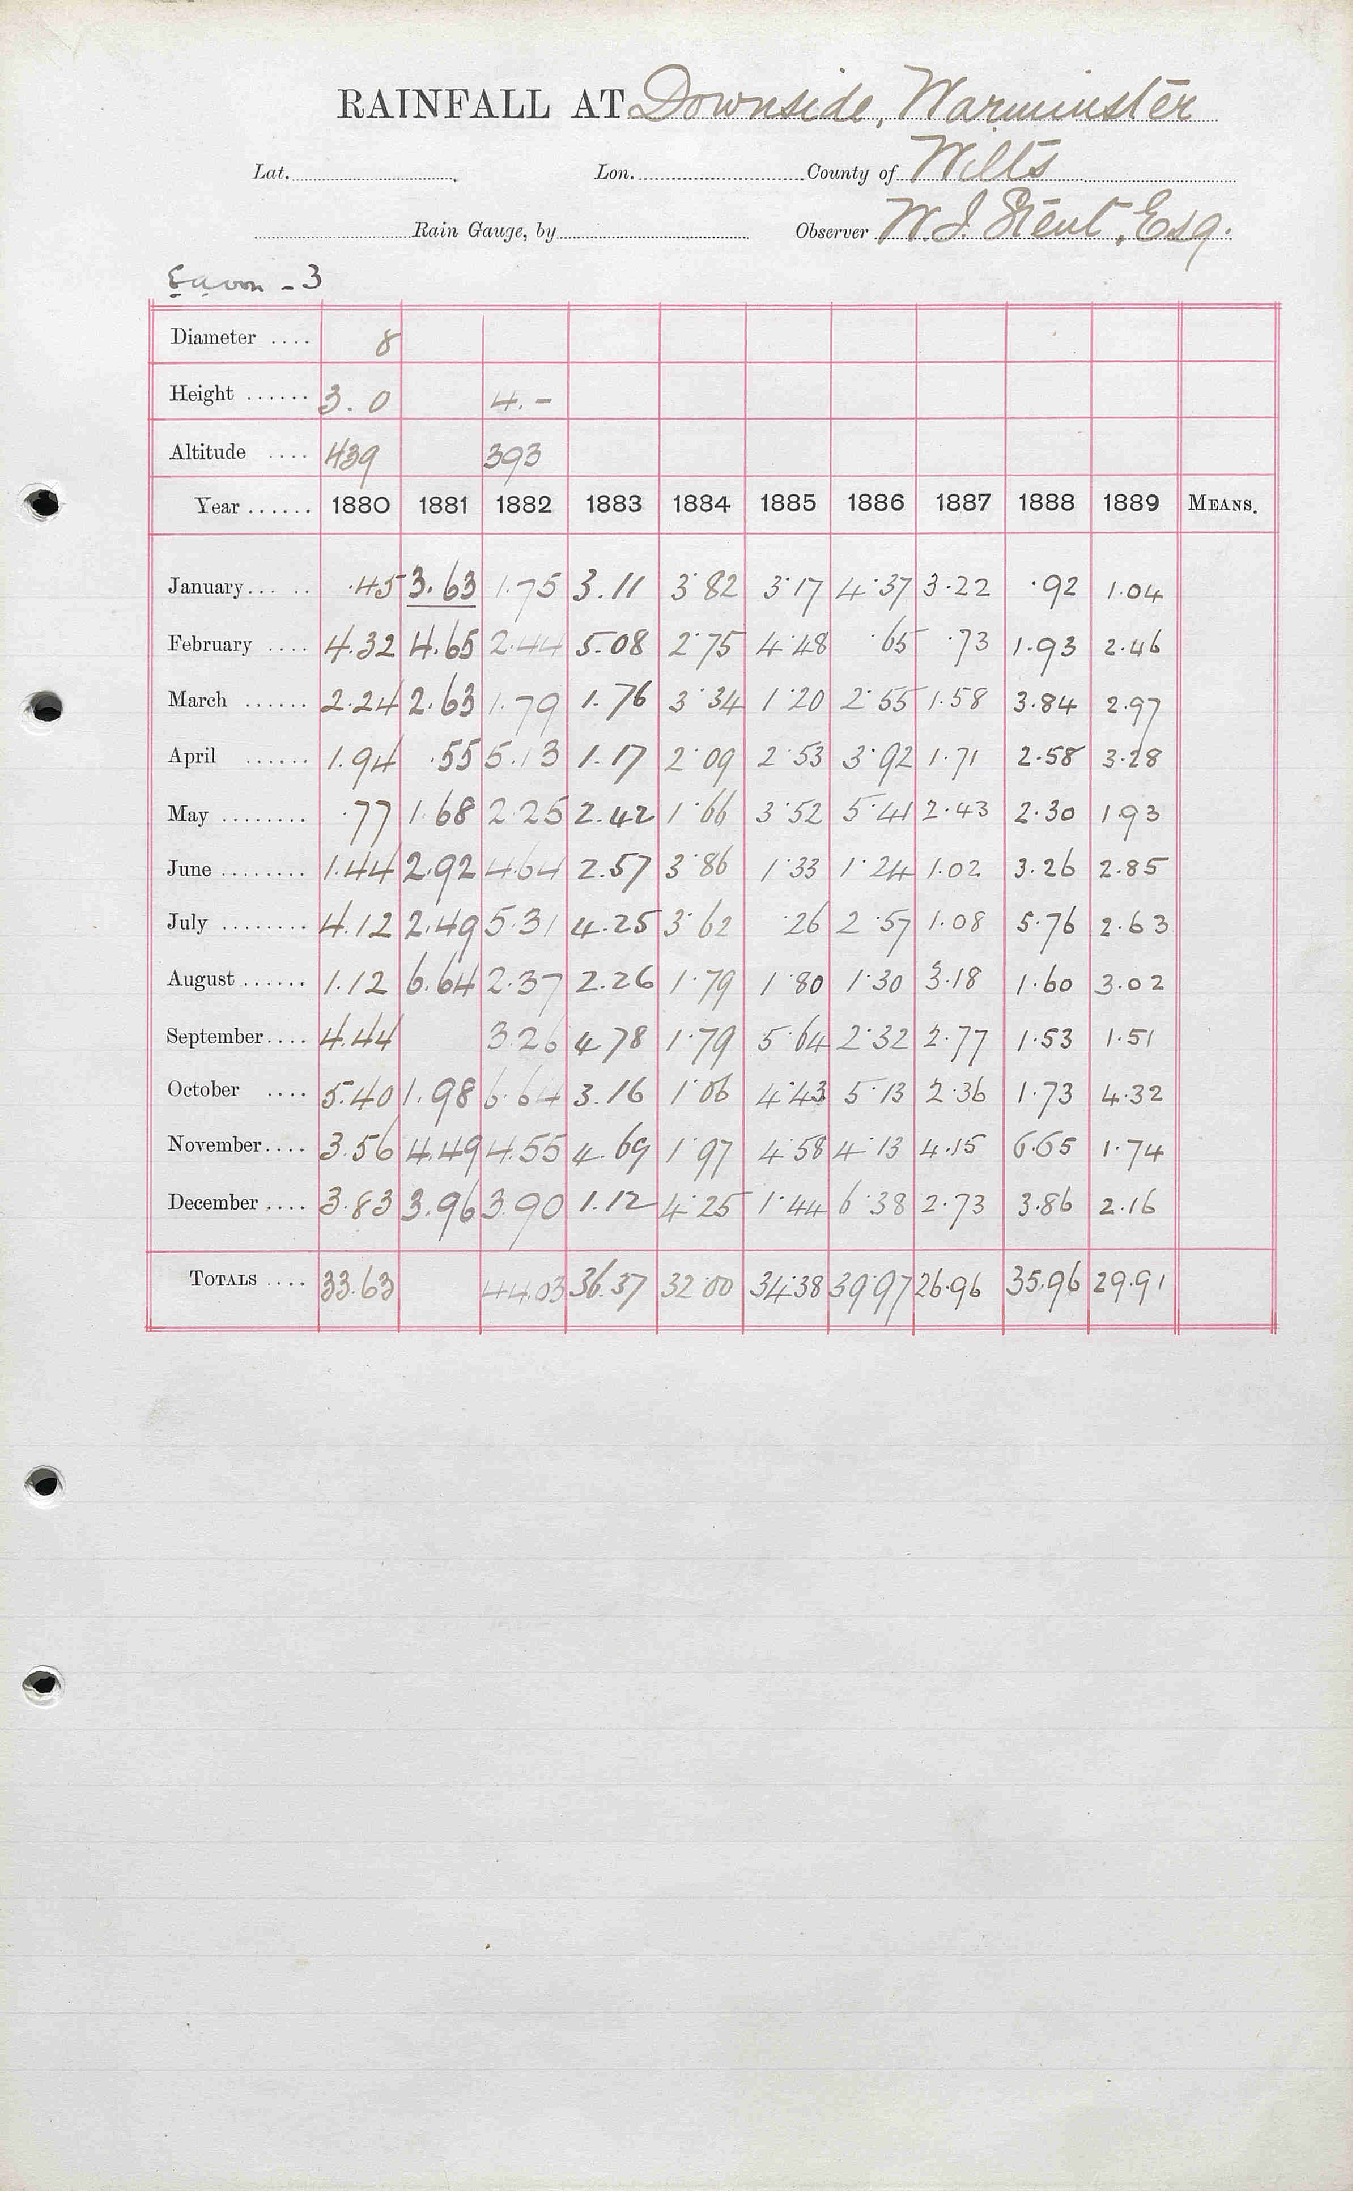 RAINFALL AT Downside, Warminster
Lat. Lon. County of Wilts
Rain Gauge, by Observer W. J. Stent, Esq.
E avon - 3
Diameter .... 8
Height ...... 3.0 4.-
Altitude .... 439 393
Year ...... 1880 1881 1882 1883 1884 1885 1886 1887 1888 1889 MEANS.
January ... .. .45 3.63 1.75 3.11 3.82 3.17 4.37 3.22 .92 1.04
February .... 4.32 4.65 2.44 5.08 2.75 4.48 .65 .73 1.93 2.46
March ...... 2.24 2.63 1.79 1.76 3.34 1.20 2.55 1.58 3.84 2.97
April ...... 1.94 .55 5.13 1.17 2.09 2.53 3.92 1.71 2.58 3.28
May ........ .77 1.68 2.25 2.42 1.66 3.52 5.41 2.43 2.30 1 93
June ........ 1.44 2.92 4.64 2.57 3.86 1.33 1.24 1.02 3.26 2.85
July ........ 4.12 2.49 5.31 4.25 3.62 .26 2.57 1.08 5.76 2.63
August ...... 1.12 6.64 2.37 2.26 1.79 1.80 1.30 3.18 1.60 3.02
September .... 4.44 3.26 4.78 1.79 5.64 2.32 2.77 1.53 1.51
October .... 5.40 1.98 6.64 3.16 1.06 4.43 5.13 2.36 1.73 4.32
November .... 3.56 4.49 4.55 4.69 1.97 4.58 4.13 4.15 6.65 1.74
December .... 3.83 3.96 3.90 1.12 4.25 1.44 6.38 2.73 3.86 2.16
TOTALS .... 33.63 44.03 36.37 32.00 34.38 39.97 26.96 35.96 29.91